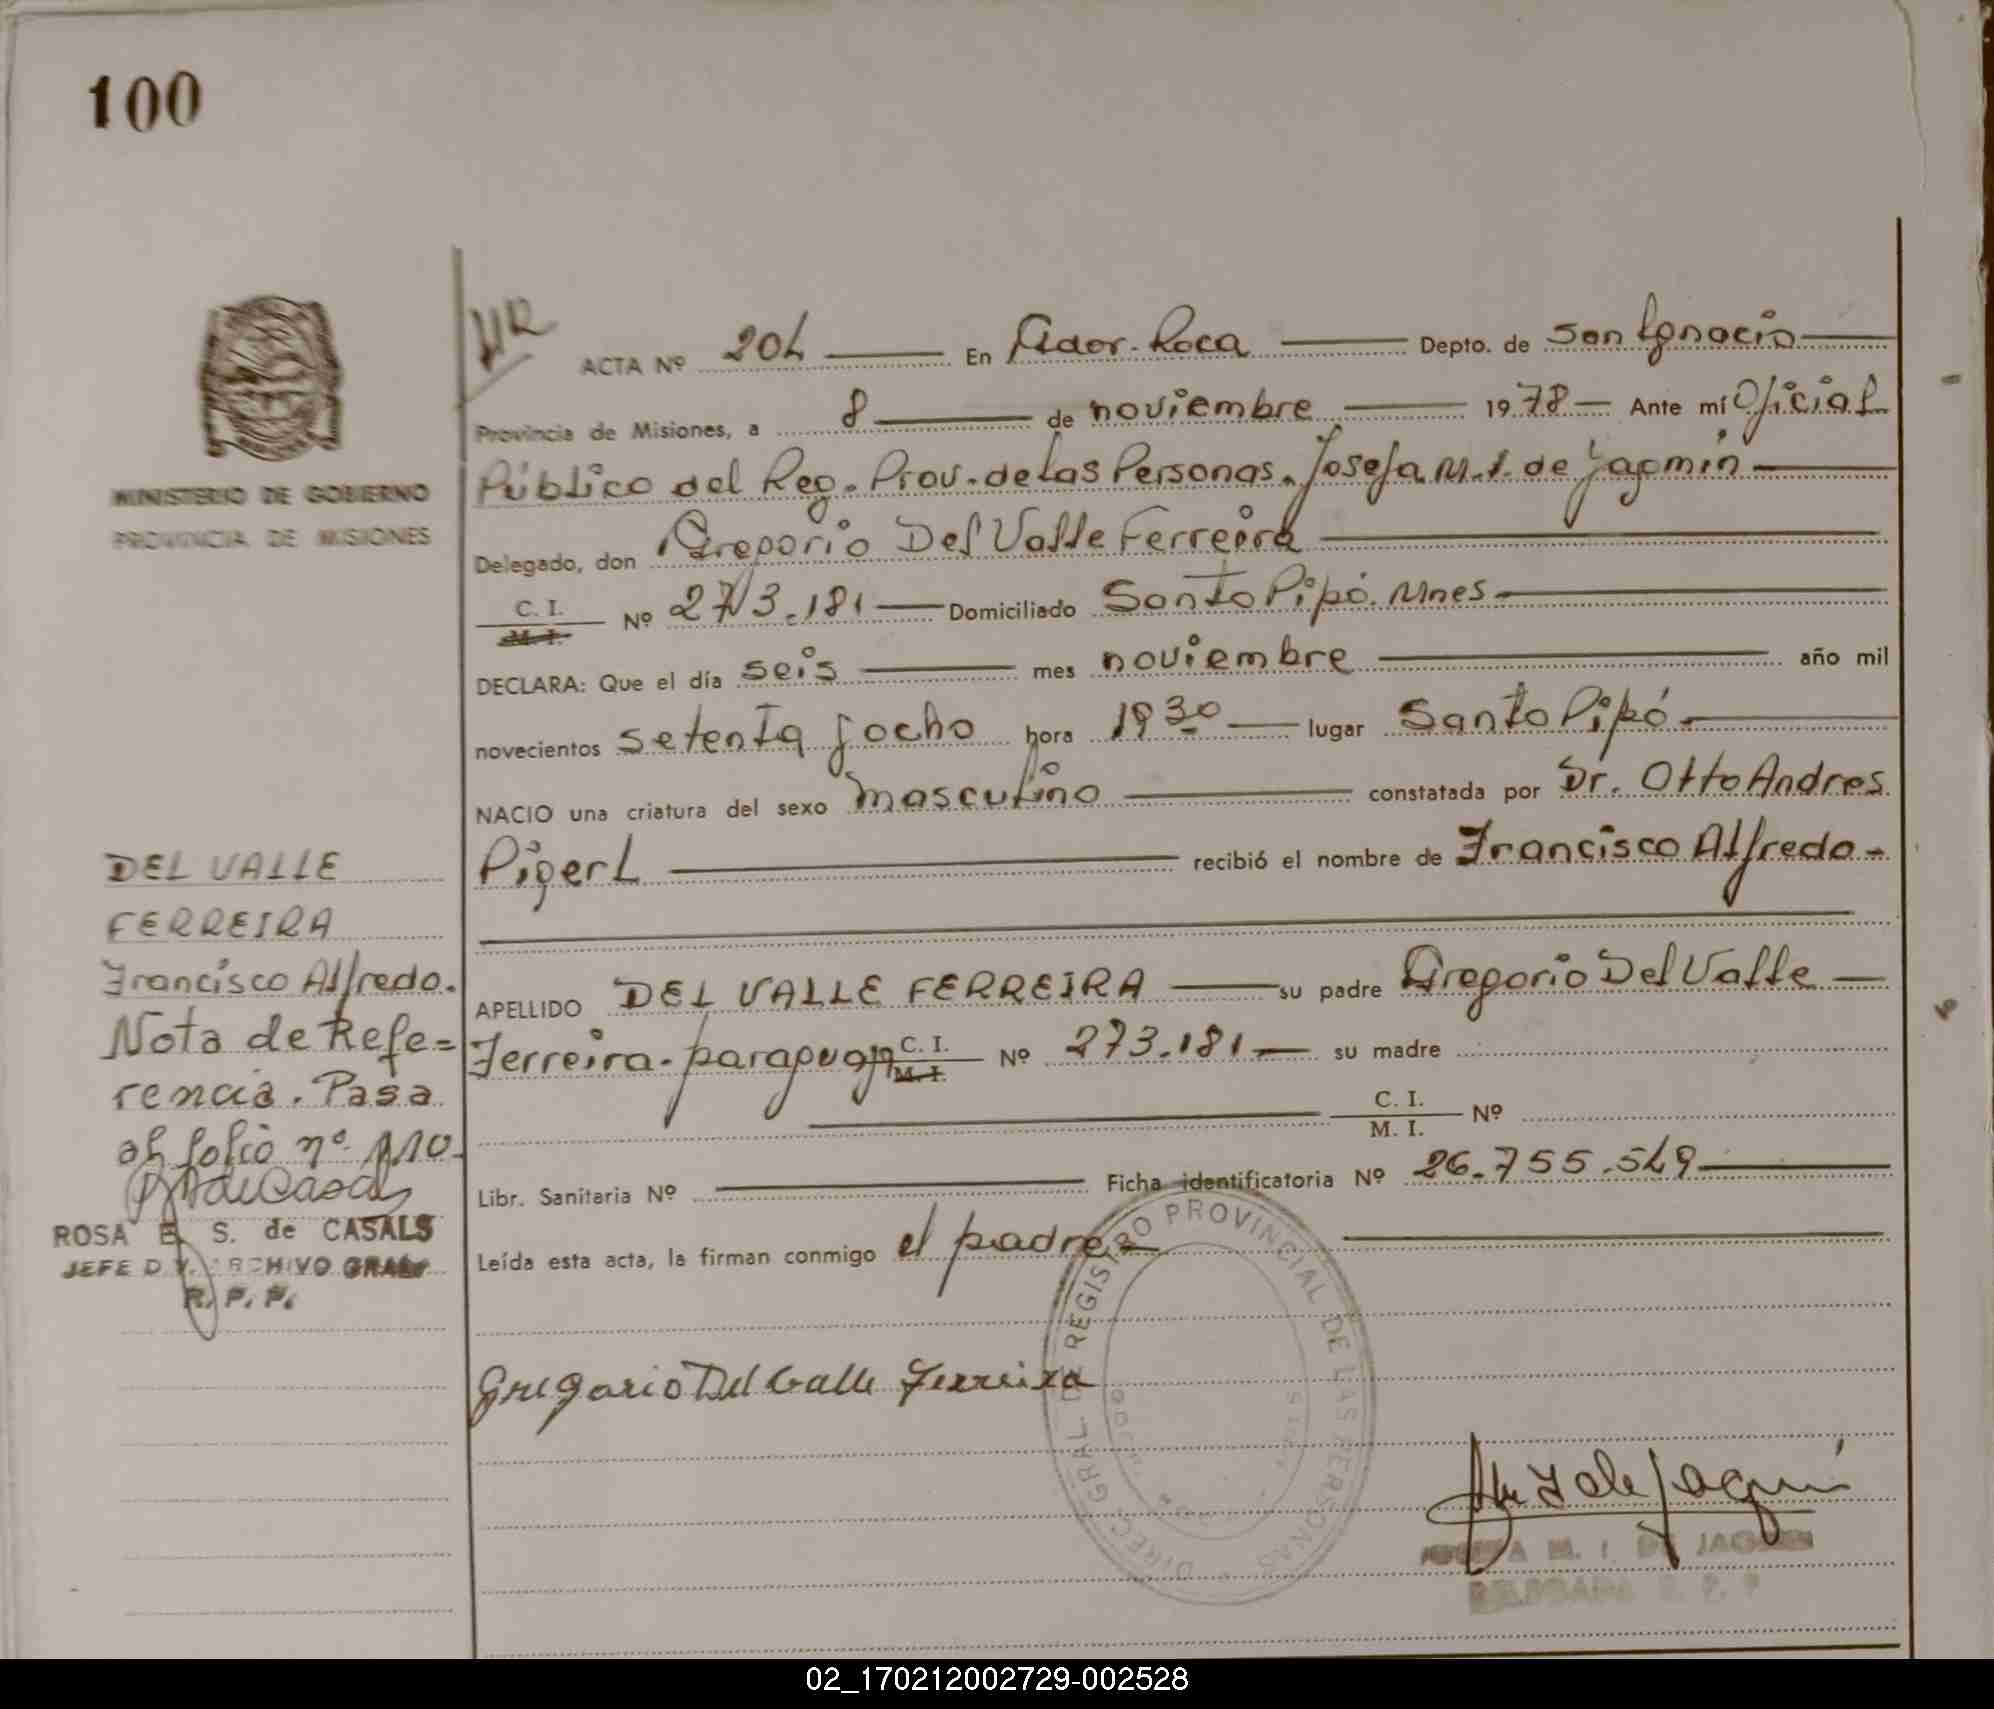 100
HR
ACTA Nº 204 En Gdor. Roca Depto. de San Ignacio
Provincia de Misiones, a 8 de noviembre 1978 Ante mí Oficial
MINISTERIO DE GOBIERNO
PROVINCIA DE MISIONES
Público del Reg. Prov. de las Personas. Josefa M.I. de Jaqmin
Delegado, don Gregorio Del Valle Ferreira
C. I.
M. I.
Nº 273.181 Domiciliado Santo Pipó. Mnes
DECLARA: Que el día seis mes noviembre año mil
novecientos setenta y ocho hora 19 30 lugar Santo Pipó
NACIO una criatura del sexo masculino constatada por Dr. Otto Andres
Pigerl recibió el nombre de Francisco Alfredo
APELLIDO DEL VALLE FERREIRA su padre Gregorio Del Valle
Ferreira. paraguay C. I. Nº 273.181 su madre
M. I.
C. I.
M. I.
Nº
Libr. Sanitaria Nº Ficha identificatoria Nº 26.755.549
Leída esta acta, la firman conmigo el padre
DEL VALLE
FERREIRA
Francisco Alfredo.
Nota de Refe=
rencia. Pasa
al folio nº 110
ROSA E. S. de CASALS
JEFE DIV. ARCHIVO GRAL
R. P. P.
Gregorio Del Valle Ferreira
DIREC. GRAL. DE REGISTRO PROVINCIAL DE LAS PERSONAS
JOSEFA M. I. DE JAQMIN
DELEGADA R. P. P.
02_170212002729-002528